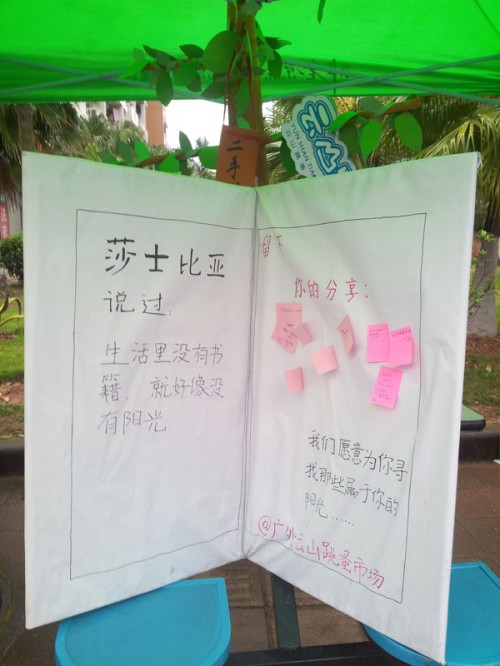 二手
云山
莎士比亚
说过:
生活里没有书
籍,就好像没
有阳光.
留下
你的分享:
我们愿意为你寻
找那些属于你的
阳光……
@广外云山跳蚤市场